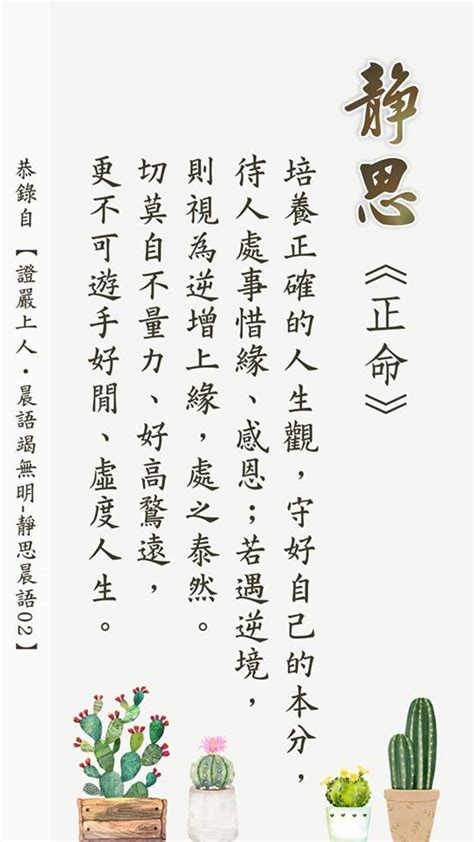 靜思
《正命》
培養正確的人生觀，守好自己的本分，
待人處事惜緣、感恩；若遇逆境，
則視為逆增上緣，處之泰然。
切莫自不量力、好高騖遠，
更不可遊手好閒、虛度人生。
恭錄自【證嚴上人・晨語竭無明-靜思晨語02】